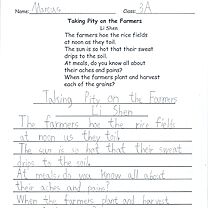 Name: Marcus Class: 3A
Taking Pity on the Farmers
Li Shen
The farmers hoe the rice fields
at noon as they toil.
The sun is so hot that their sweat
drips to the soil.
At meals, do you know all about
their aches and pains?
When the farmers plant and harvest
each of the grains?
Taking Pity on the Farmers
Li Shen
The farmers hoe the rice fields
at noon us they toil.
The sun is so hot that their sweat
drips to the soil.
At meals, do you know all about
their aches and pains?
When the farmers plant and harvest